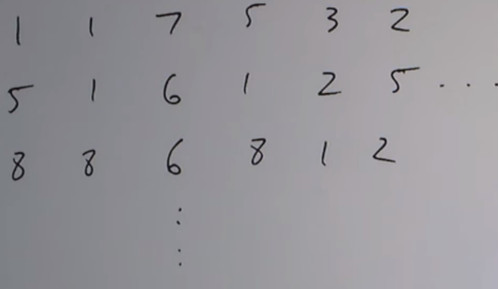 1 1 7 5 3 2
5 1 6 1 2 5 ...
8 8 6 8 1 2
:
: